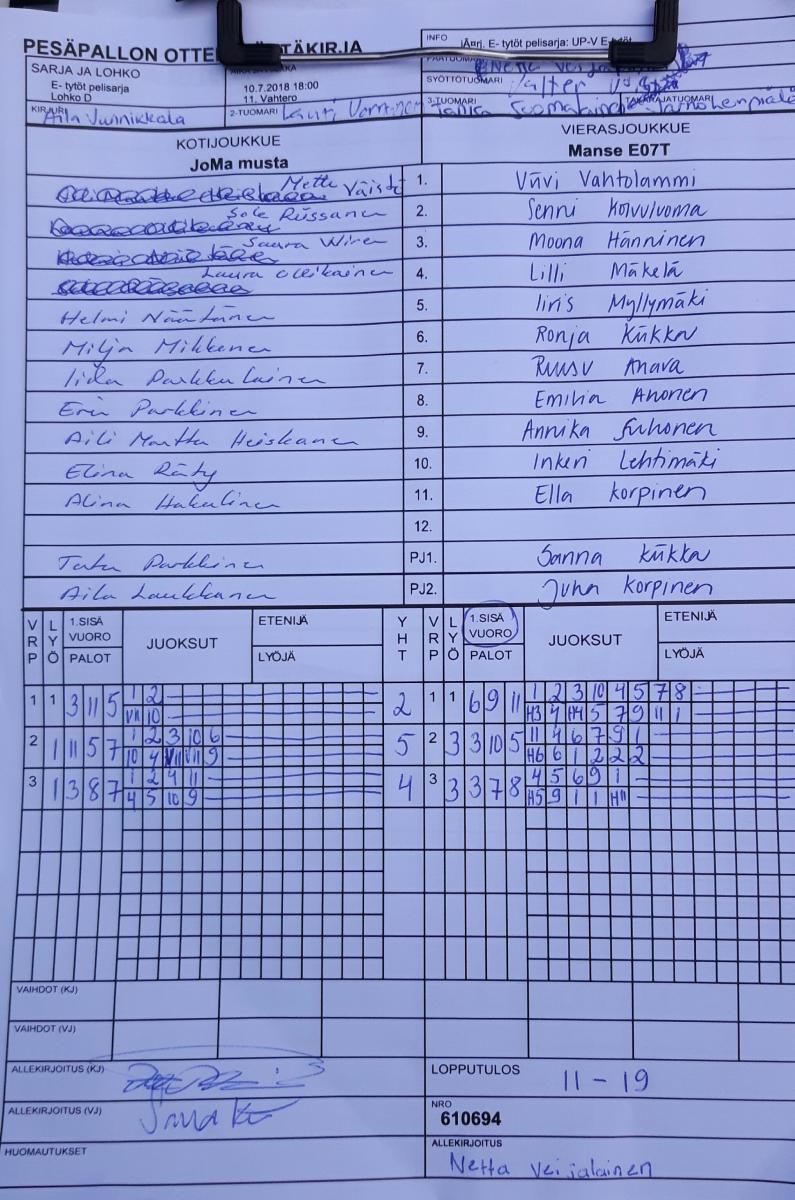 PESÄPALLON OTTE
INFO
E- tytöt pelisarja: UP-V E-
SARJA JA LOHKO
E- tytöt pelisarja
Lohko D
10.7.2018 18:00
11. Vahtero
SYÖTTÖTUOMARI
KIRJURI
Aila Vuinikkala
2-TUOMARI
3-TUOMARI
KOTIJOUKKUE
VIERASJOUKKUE
JoMa musta
Manse E07T
Mette Väistö 1. Viivi Vahtolammi
Sole Rüssanen 2. Senni Koivuluoma
Saara Wiren 3. Moona Hänninen
Laura 4. Lilli Mäkelä
Helmi Näätänen 5. Iiris Myllymäki
Milja Mikkonen 6. Ronja Kiikka
Iida Parkkulainen 7. Ruusu Anava
Erin Parkkinen 8. Emilia Ahonen
Aili Martta Heiskanen 9. Annika Suhonen
Elina Räty 10. Inkeri Lehtimäki
Alina Hakulinen 11. Ella Korpinen
12.
Parkkinen PJ1. Sanna Kiikka
Aila Laukkanen PJ2. Juha Korpinen
VRP LYÖ 1.SISÄ VUORO PALOT JUOKSUT ETENIJÄ LYÖJÄ YHT VRP LYÖ 1.SISÄ VUORO PALOT JUOKSUT ETENIJÄ LYÖJÄ
1 1 3 11 5 1 2 2 1 1 6 9 11 1 2 3 10 4 5 7 8
VII 10 H3 4 H4 5 7 9 11 1
2 1 11 5 7 1 2 3 10 6 5 2 3 3 10 5 11 4 6 7 9 1
10 4 VII VII 9 H6 6 1 2 2 2
3 1 3 8 7 1 2 4 11 4 3 3 3 7 8 4 5 6 9 1
4 5 10 9 H5 9 1 1 H11
VAIHDOT (KJ)
VAIHDOT (VJ)
ALLEKIRJOITUS (KJ)
LOPPUTULOS 11 - 19
ALLEKIRJOITUS (VJ)
NRO
610694
HUOMAUTUKSET
ALLEKIRJOITUS
Netta Veijalainen